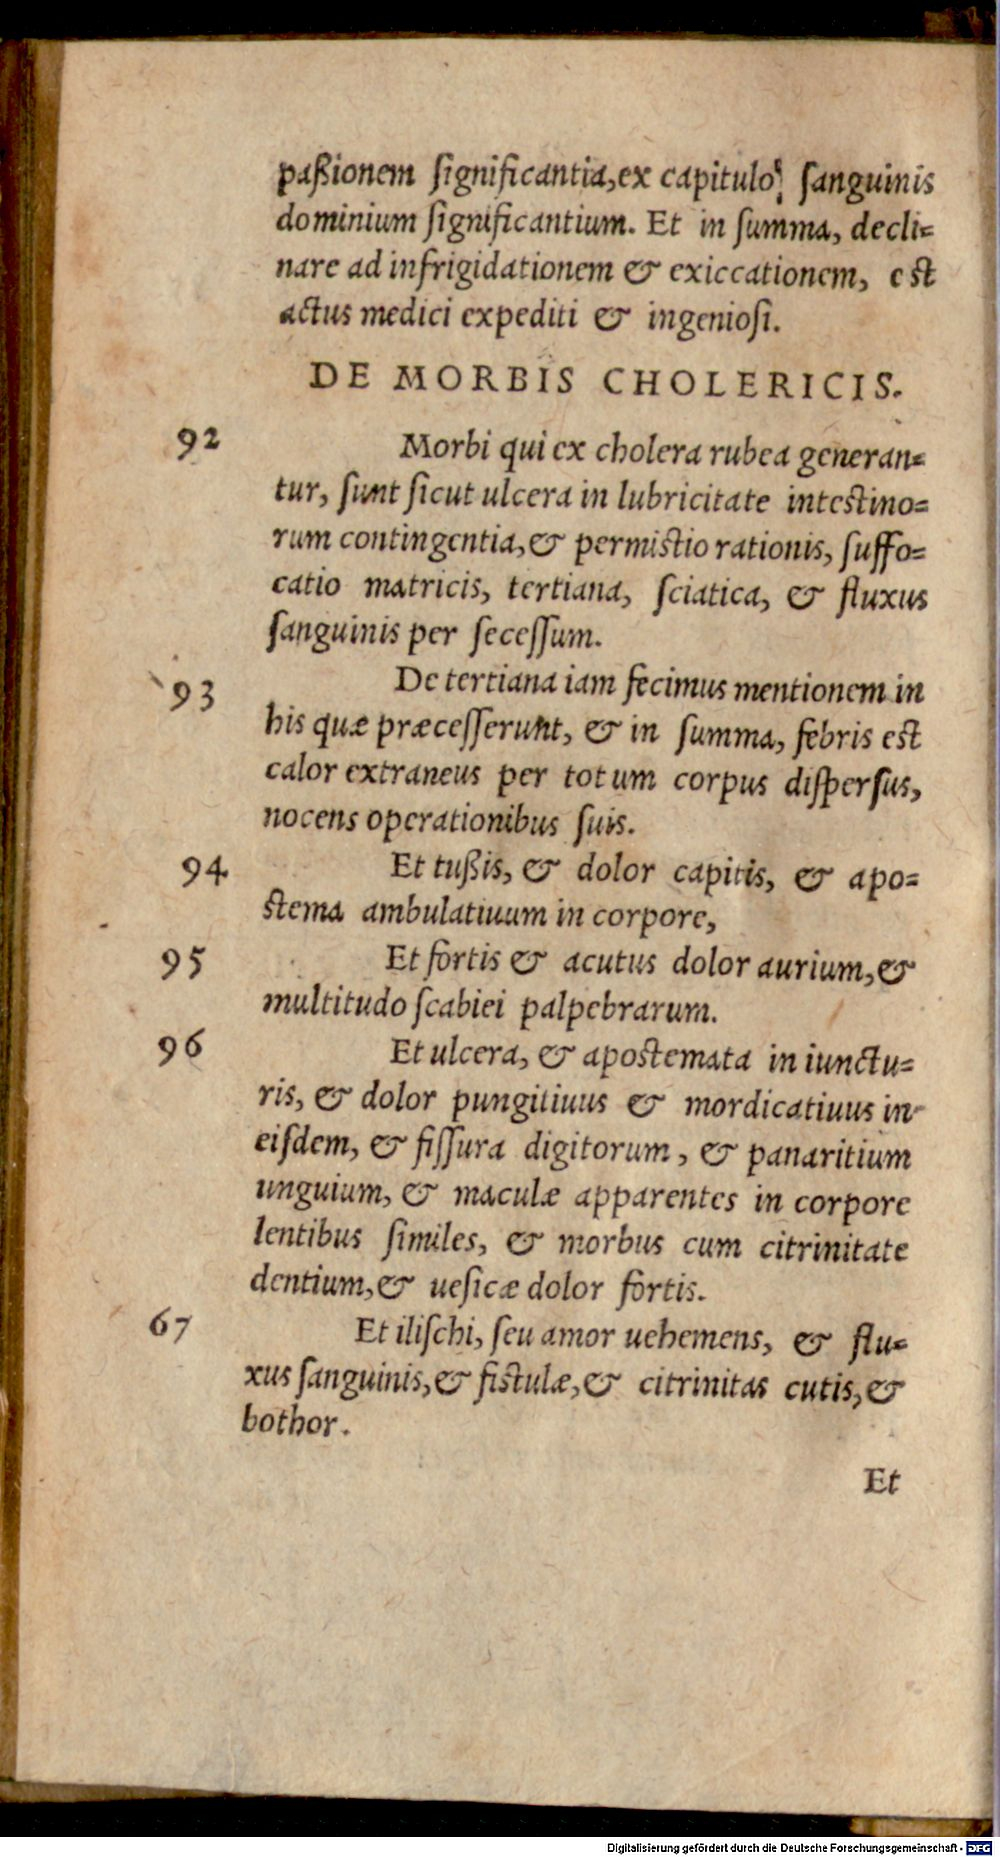 paßionem ſignificantia,ex capitulo ſanguinis
dominium ſignificantium. Et in ſumma, decli=
nare ad infrigidationem & exiccationem, eſt
actus medici expediti & ingenioſi.
DE MORBIS CHOLERICIS.
92 Morbi qui ex cholera rubea generan=
tur, ſunt ſicut ulcera in lubricitate inteſtino=
rum contingentia,& permiſtio rationis, ſuffo=
catio matricis, tertiana, ſciatica, & fluxus
ſanguinis per ſeceſſum.
93 De tertiana iam fecimus mentionem in
his quæ præceſſerunt, & in ſumma, febris eſt
calor extraneus per totum corpus diſperſus,
nocens operationibus ſuis.
94 Et tußis, & dolor capitis, & apo=
ſtema ambulatiuum in corpore,
95 Et fortis & acutus dolor aurium,&
multitudo ſcabiei palpebrarum.
96 Et ulcera, & apoſtemata in iunctu=
ris, & dolor pungitiuus & mordicatiuus in
eiſdem, & fiſſura digitorum, & panaritium
unguium, & maculæ apparentes in corpore
lentibus ſimiles, & morbus cum citrinitate
dentium,& ueſicæ dolor fortis.
67 Et iliſchi, ſeu amor uehemens, & flu=
xus ſanguinis,& fiſtulæ,& citrinitas cutis,&
bothor.
Et
Digitalisierung gefördert durch die Deutsche Forschungsgemeinschaft - DFG